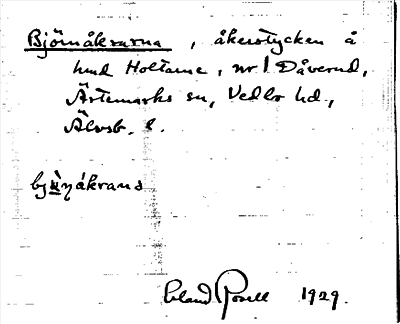 Björnåkrarna, åkerstycken å
hmd Holtarne, nr 1 Dåverud,
Ärtemarks sn, Vedbo hd.,
Älvsb. l.
Erland Rosell 1929.